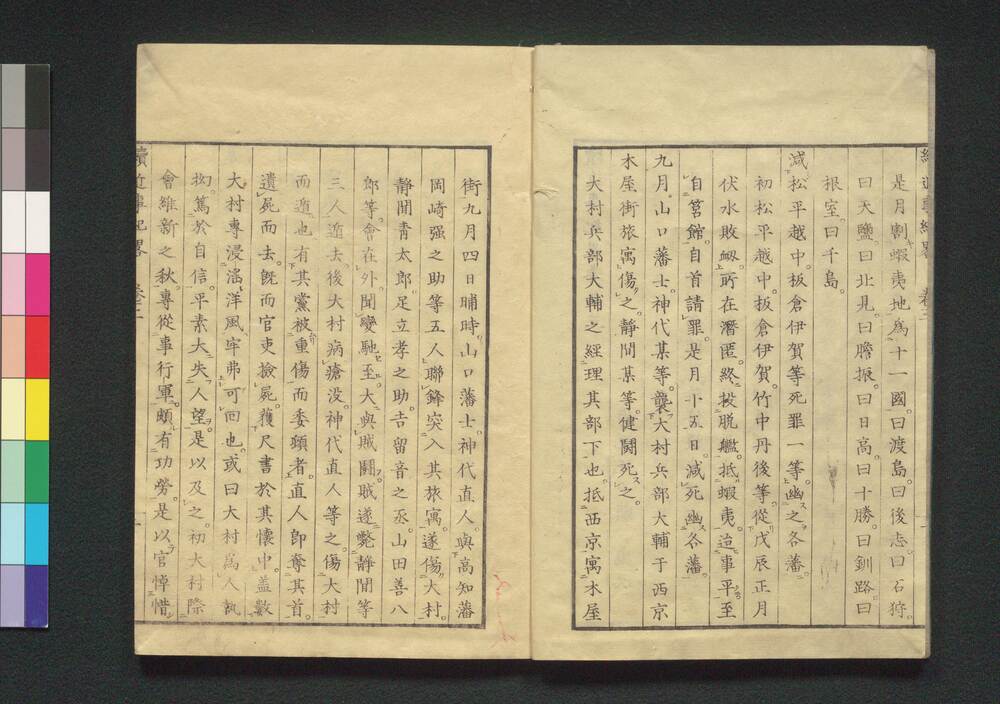 是月割蝦夷地爲十一國曰渡島曰後志曰石狩
曰天鹽曰北見曰膽振曰日高曰十勝曰釧路曰
根室曰千島
減松平越中板倉伊賀等死罪一等幽之各藩
初松平越中板倉伊賀竹中丹後等從戊辰正月
伏水敗衂所在潛匿終投脱艦抵蝦夷迨事平至
自筥館自首請罪是月十五日減死幽各藩
九月山口藩士神代某等襲大村兵部大輔于西京
木屋街旅寓傷之靜間某等健鬪死之
大村兵部大輔之經理其部下也抵西京寓木屋
街九月四日晡時山口藩士神代直人與高知藩
岡崎强之助等五人聯鋒突入其旅寓遂傷大村
靜間靑太郎足立孝之助吉留音之丞山田善八
郎等會在外聞變馳至大與賊鬪賊遂斃靜間等
三人逌去後大村病瘡没神代直人等之傷大村
而遁也有其黨被重傷而委頓者直人卽奪其首
遺屍而去旣而官吏撿屍獲尺書於其懷中蓋數
大村專浸滛洋風牢弗可回也或曰大村爲人執
拗篤於自信平素大失人望是以及之初大村際
會維新之秋專從事行軍頗有功勞是以官悼惜